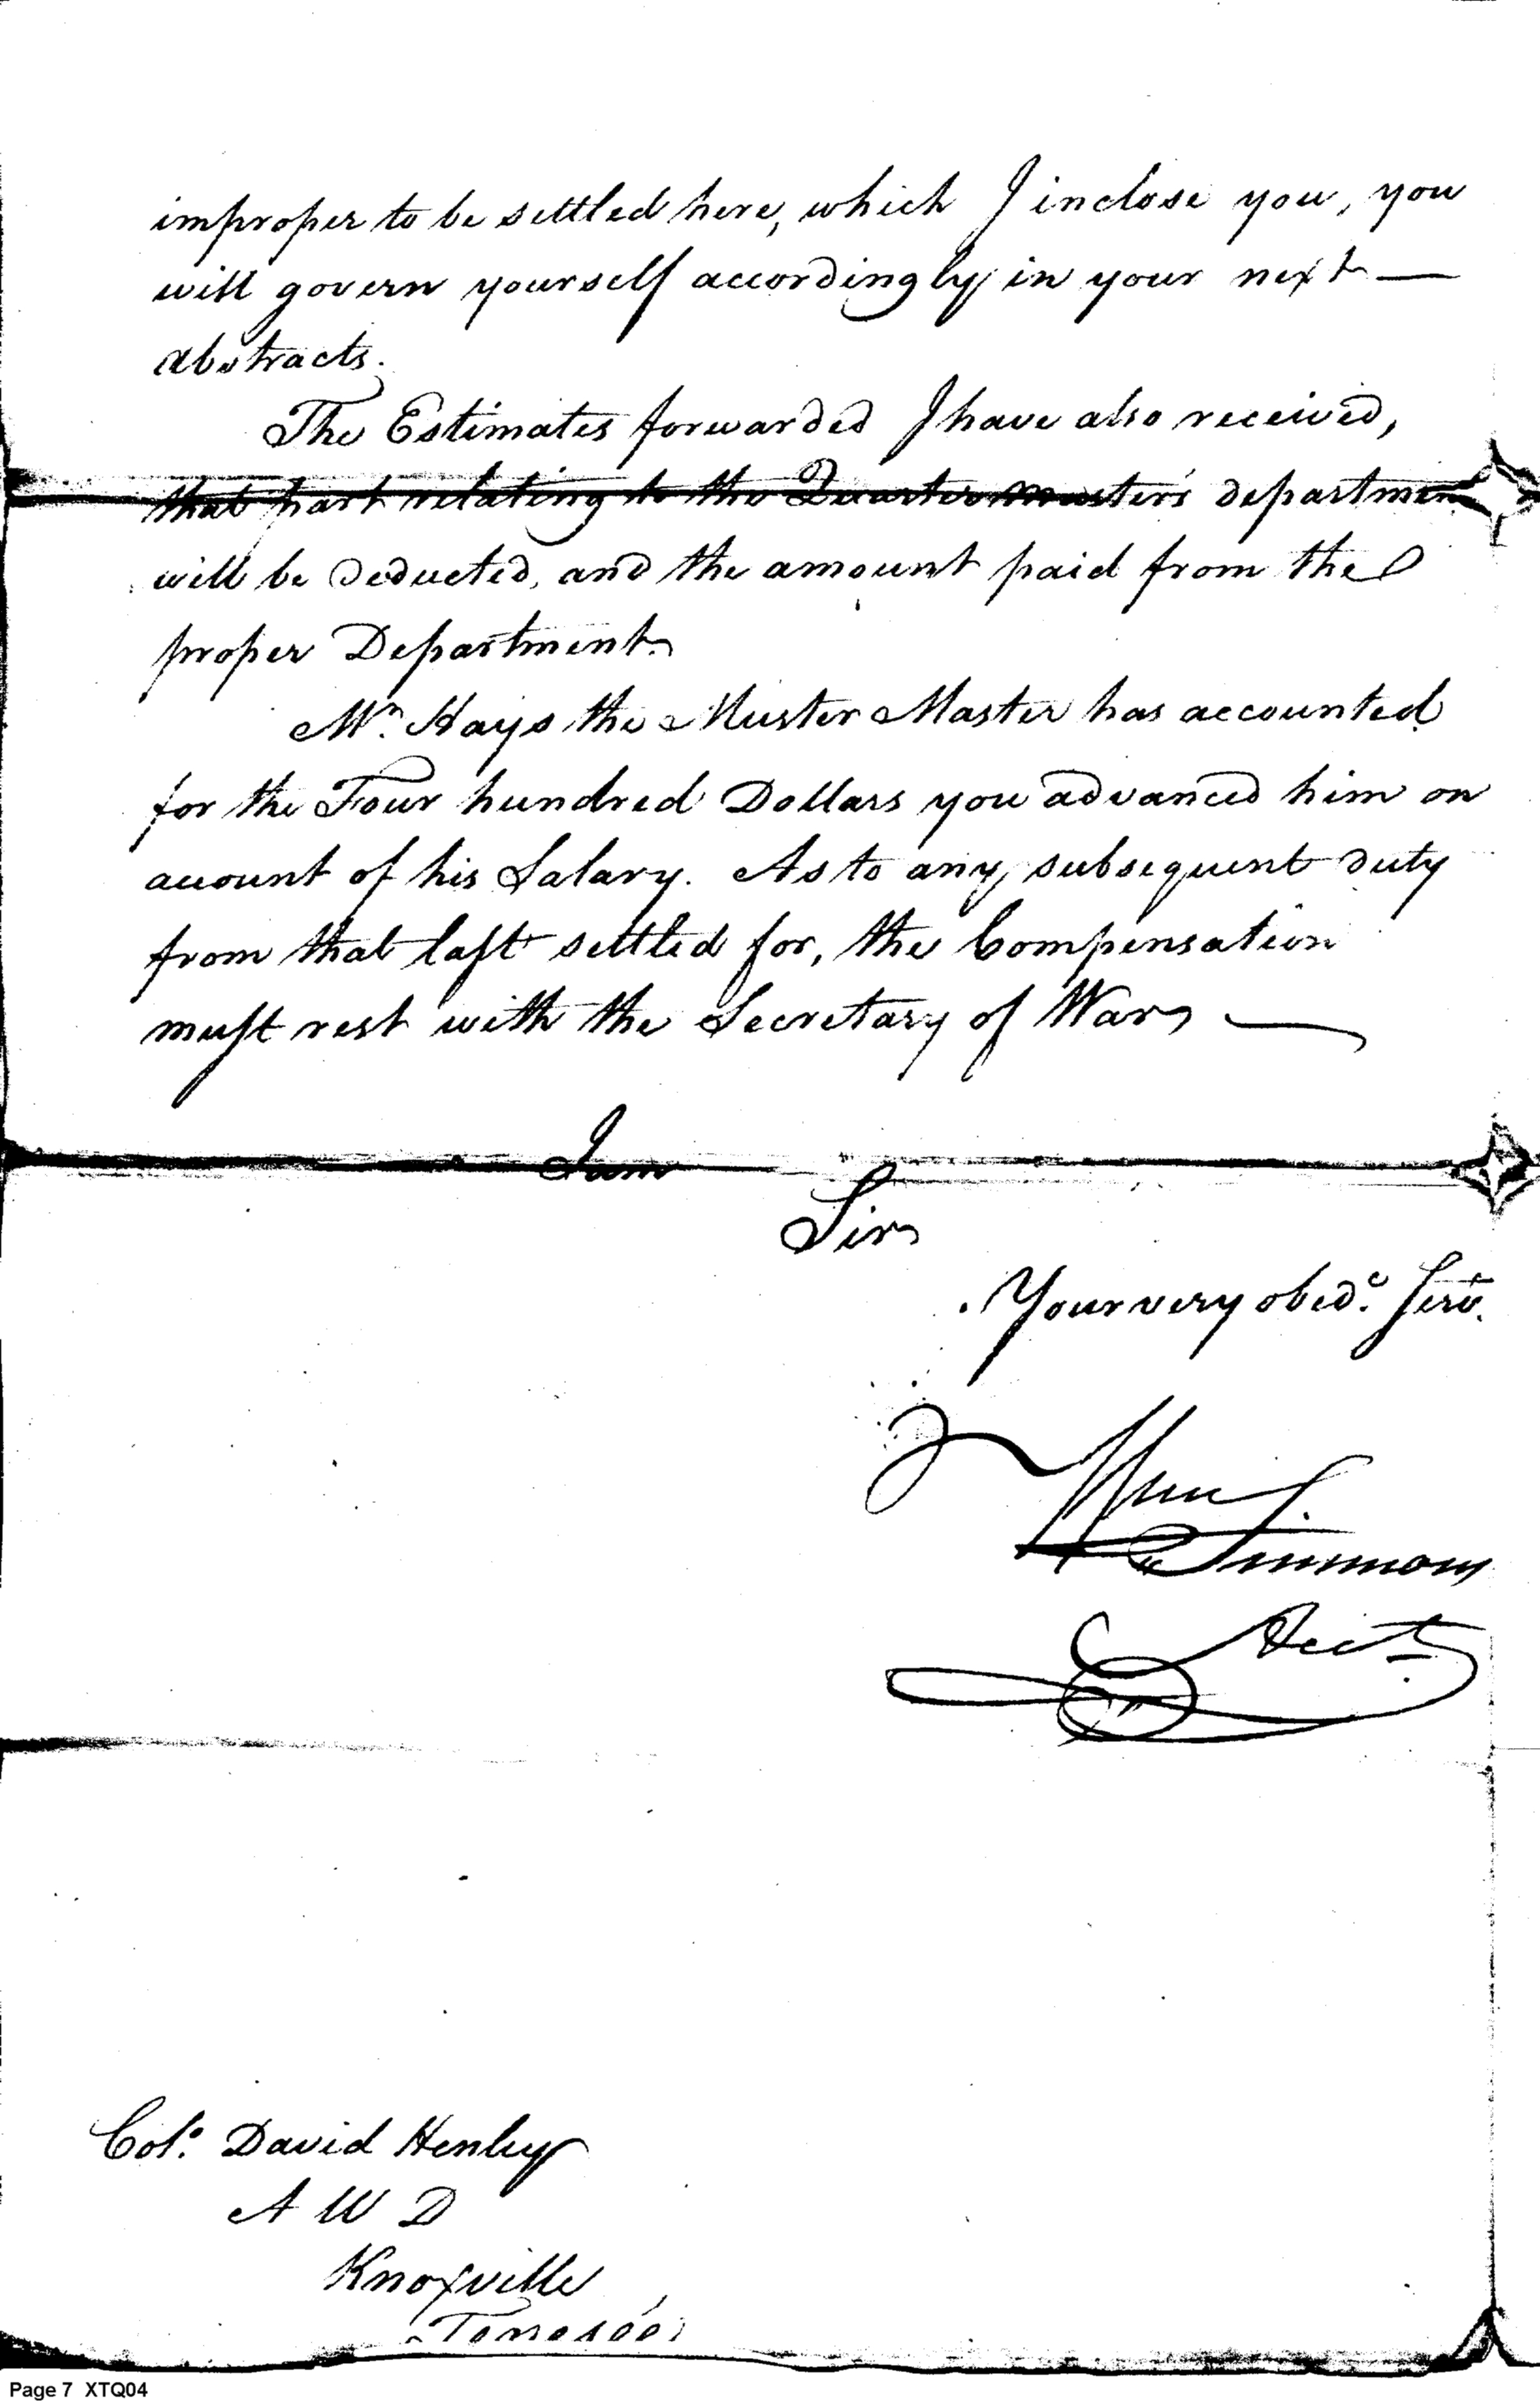 improper to be settled here, which I inclose you, you
will govern yourself accordingly in your next —
abstracts.
The Estimates forwarded I have also received,
that part relating to the Quartermaster's departmen
will be deducted, and the amount paid from the
proper Department.
Mr. Hays the Muster Master has accounted
for the Four hundred Dollars you advanced him on
account of his Salary. As to any subsequent duty
from that last settled for, the Compensation
must rest with the Secretary of War —
I am
Sir
Your very obedt. Servt.
Wm.
Simmons
Acct.
Colo. David Henley
A W D
Knoxville
Tenesée
Page 7 XTQ04